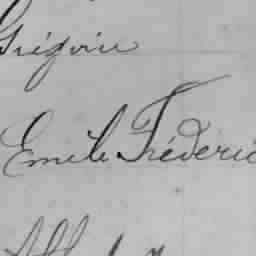 Grégoire
Emile Frederic